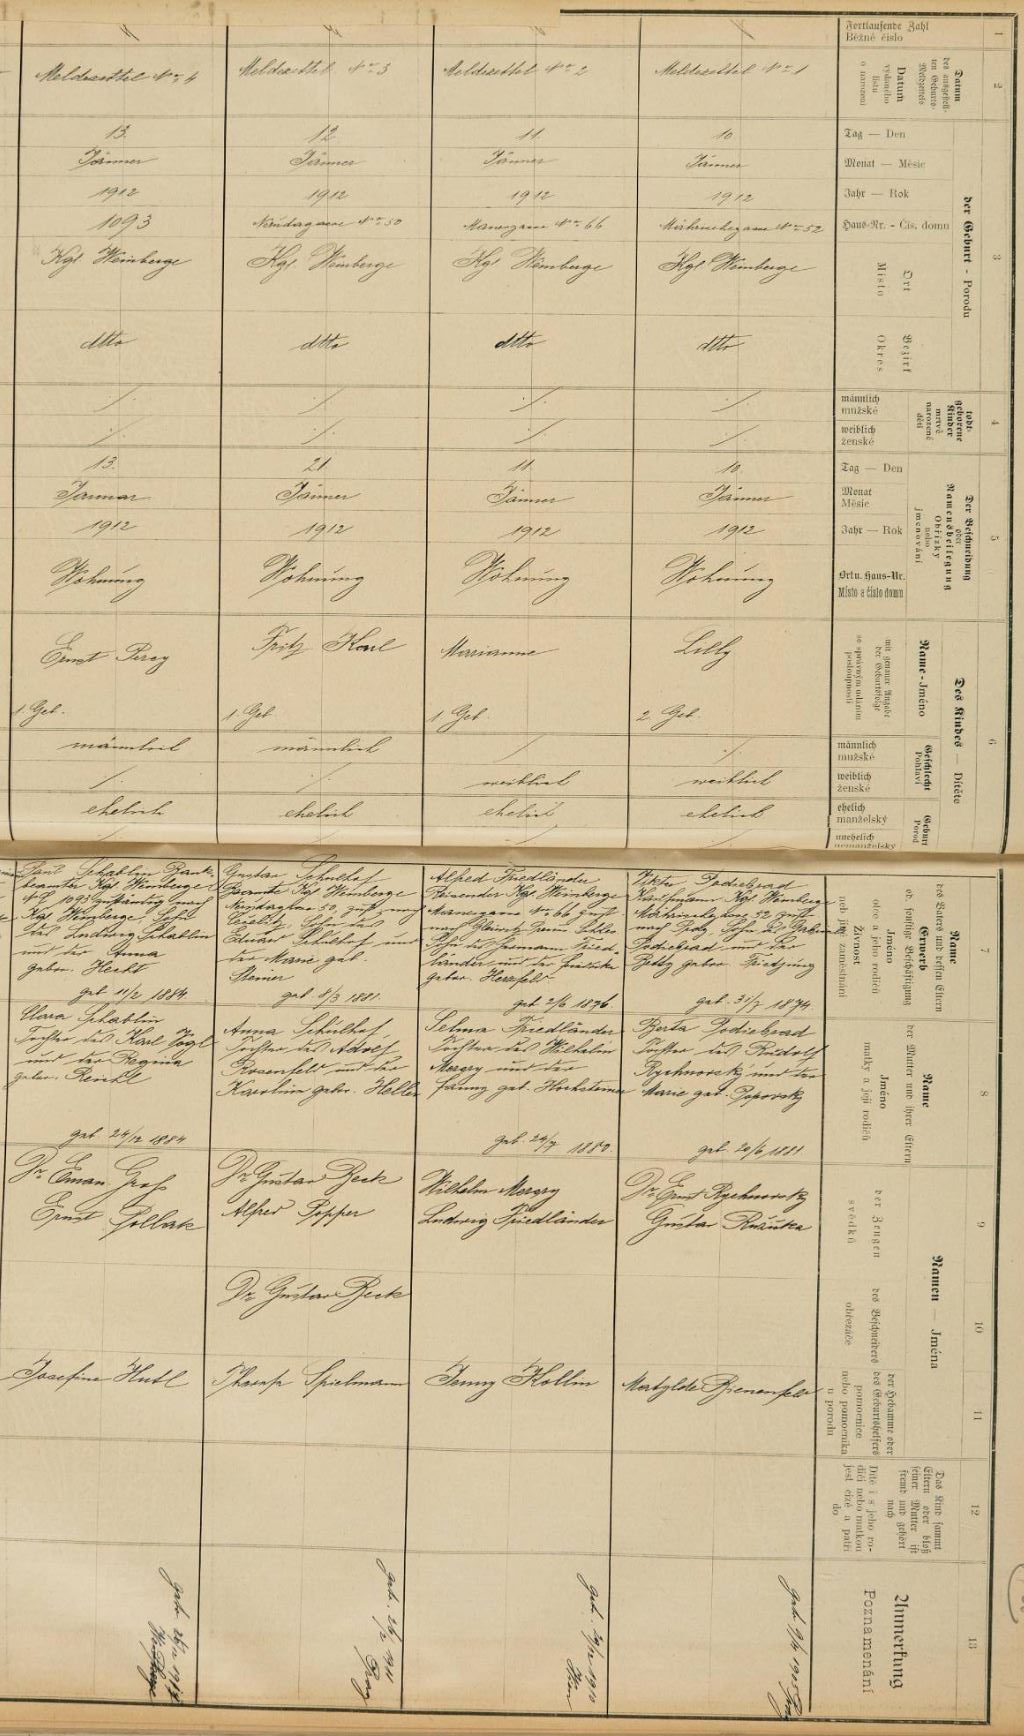 Fortlaufende Zahl
Běžné číslo
1
Datum
des ausgestellten Geburts-Meldzettels
Datum
vydaného
listu
o narození
2
Meldezettel No 1
Meldezettel No 2
Meldezettel No 3
Meldezettel No 4
der Geburt - Porodu
3
Tag — Den
10
11
12
13.
Monat — Měsíc
Jänner
Jänner
Jänner
Jänner
Jahr — Rok
1912
1912
1912
1912
Haus-Nr. - Čís. domu
No 52
No 66
No 50
1093
Ort
Místo
Kgl Weinberge
Kgl Weinberge
Kgl. Weinberge
Kgl Weinberge
Bezirk
Okres
dtto
dtto
dtto
dtto
todt-
geborene
Kinder
mrtvě
narozené
děti
4
männlich
mužské
weiblich
ženské
Der Beschneidung
oder
Namensbeilegung
Obřízky
nebo
jmenování
5
Tag — Den
10.
11.
21.
13.
Monat
Měsíc
Jänner
Jänner
Jänner
Januar
Jahr — Rok
1912
1912
1912
1912
Ort u. Haus-Nr.
Místo a číslo domu
Wohnung
Wohnung
Wohnung
Wohnung
Des Kindes — Dítěte
6
Name - Jméno
mit genauer Angabe
der Geburtsfolge
se správným udáním
posloupnosti
Lilly
2 Geb.
Marianne
1 Geb.
Fritz Karl
1 Geb
Ernst Percy
1 Geb.
Geschlecht
Pohlaví
männlich
mužské
männlich
männlich
weiblich
ženské
weiblich
weiblich
Geburt
Porod
ehelich
manželský
ehelich
ehelich
ehelich
ehelich
unehelich
nemanželský
Name
des Vaters und dessen Eltern
Erwerb
ob. sonstige Beschäftigung
Jméno
otce a jeho rodičů
Živnost
neb jiné zaměstnání
7
Viktor Podiebrad
Kaufmann Kgl Weinberge
52
Podiebrad und der
Betty gebor. Friedjung
geb. 31/7 1874
Alfred Friedländer
Reisender Kgl Weinberge
No 66
Sohn des Hermann Fried
länder und der
gebor. Herzfeld
geb 2/6 1876.
Gustav Schulhof
Beamte Kgl Weinberge
50,
Sohn des
Eduard Schulhof und
der Marie geb.
Steiner
geb 8/3 1881.
Paul Schablin Bank-
beamter Kgl Weinberge
No 1093 zuständig nach
Kgl Weinberge, Sohn
des Ludwig Schablin
und der Anna
gebor. Hecht
geb 11/2 1884.
Name
der Mutter und ihrer Eltern
Jméno
matky a její rodičů
8
Berta Podiebrad
Tochter des Rudolf
Rychnovský und der
Marie geb. Popovský
geb. 20/6 1881
Selma Friedländer
Tochter des Wilhelm
und der
Fanny geb.
geb. 24/7 1880
Anna Schulhof
Tochter des Adolf
Rosenfeld und der
Karolin gebor. Heller
Clara Schablin
Tochter des Karl
und der Regina
gebor.
geb. 24/12 1884
Namen Jména
der Zeugen
svědků
9
Dr. Ernst Rychnovský
Gustav
Wilhelm
Ludwig Friedländer
Dr Gustav Beck
Alfred Popper
Dr. Eman. Gross
Ernst Pollak
des Beschneiders
obřezáče
10
Dr Gustav Beck
der Hebamme oder
des Geburtshelfers
pomocnice
nebo pomocníka
u porodu
11
Matylde Bienenfeld
Jenny Kollin
Spielmann
Josefine
Das Kind sammt
Eltern oder bloß
seiner Mutter ist
fremd und gehört
nach
Dítě i s jeho ro-
diči nebo matkou
jest cizé a patří
do
12
Anmerkung
Poznamenání
13
getr. 9/4 1905 Prag
getr. 1910
Wien
getr. 1911
Prag
getr.
Weinberge